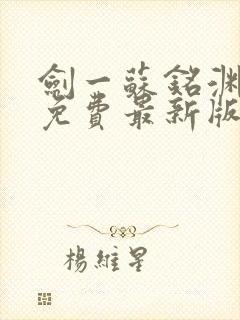 劍一蘇銘淵
免費最新版
楊維星